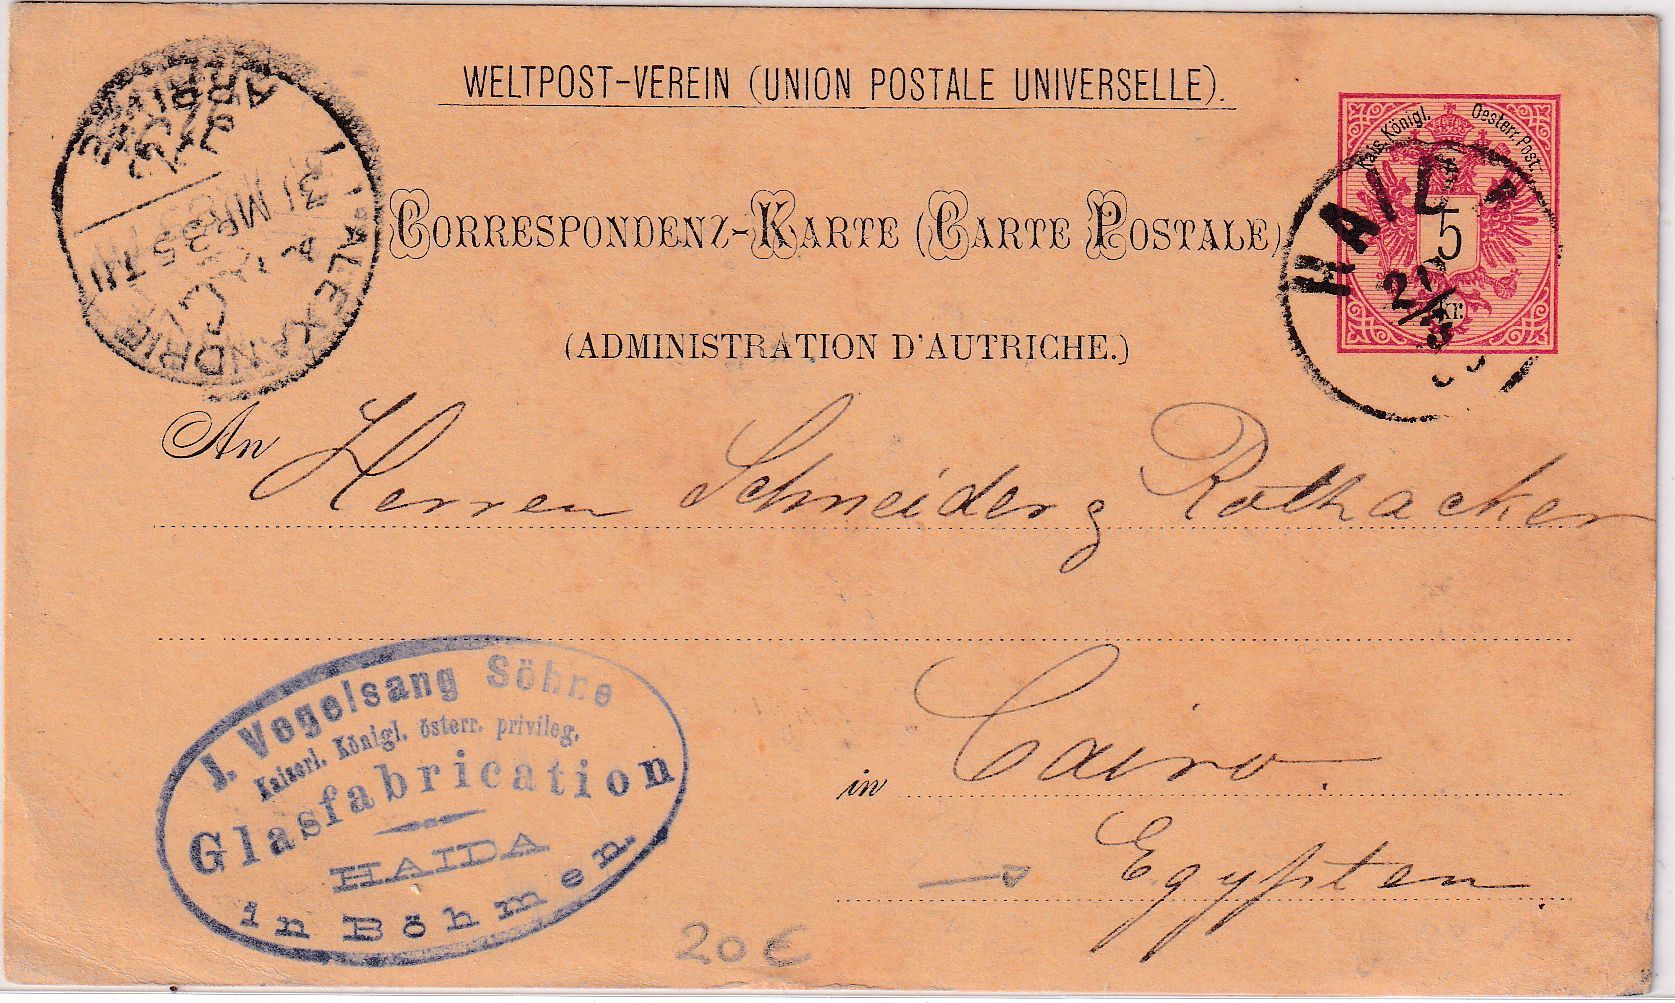 WELTPOST-VEREIN (UNION POSTALE UNIVERSELLE).
CORRESPONDENZ-KARTE (CARTE POSTALE)
(ADMINISTRATION D'AUTRICHE.)
Kais. Königl. Oesterr. Post.
5
kr.
HAID
ALEXANDRIE
ARRIVÉE
31 MR 85
An Herren Schneider & Rothacker
in Cairo
Egypten
J. Vogelsang Söhne
Kaiserl. Königl. österr. privileg.
Glasfabrication
HAIDA
in Böhmen.
20 €